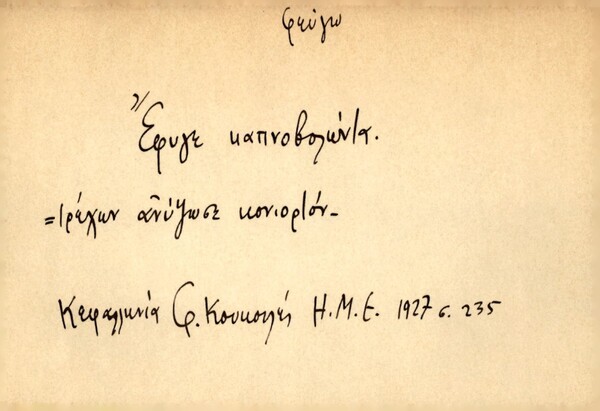 φεύγω
Ἔφυγε καπνοβολῶντα.
=τρέχων ἀνύψωσε κονιορτόν_
Κεφαλληνία Φ. Κουκουλές Η.Μ.Ε. 1927 σ. 235